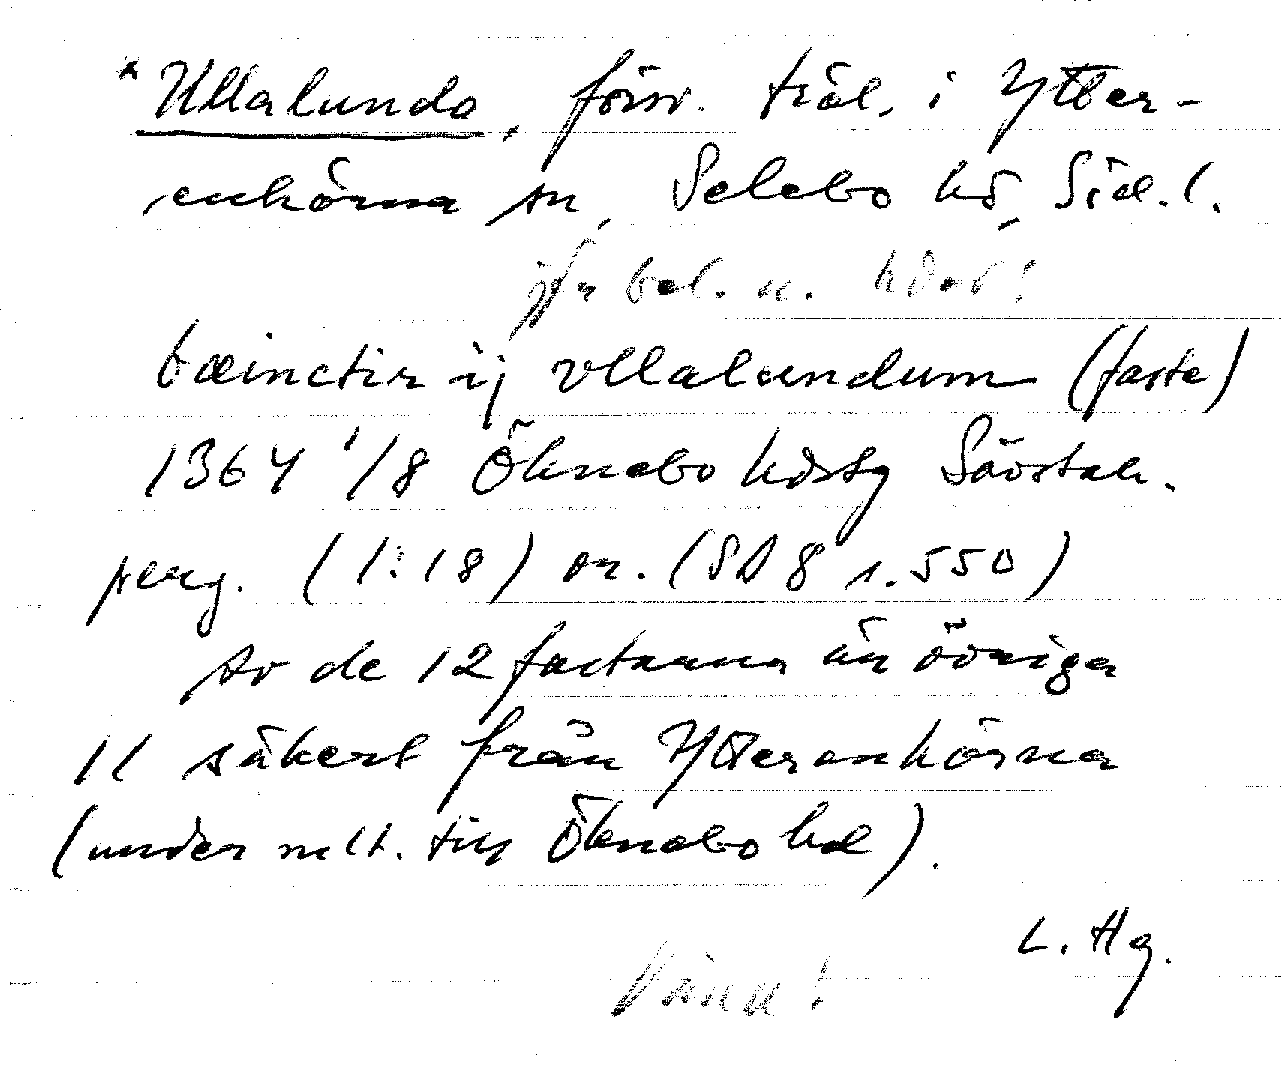 *Ullalunda, försv. trol. i Ytter-
enhörna sn, Selebo hd, Söd.l.
jfr bel. u. hdet!
bæinctir ij vllalundum (faste)
1364 1/8 Öknebo hdstg Sävstah.
perg. (1:18) or. (SD 8 s. 550)
Av de 12 fastarna är övriga
11 säkert från Ytterenhörna
(under mlt. till Öknebo hd).
L. Hg.